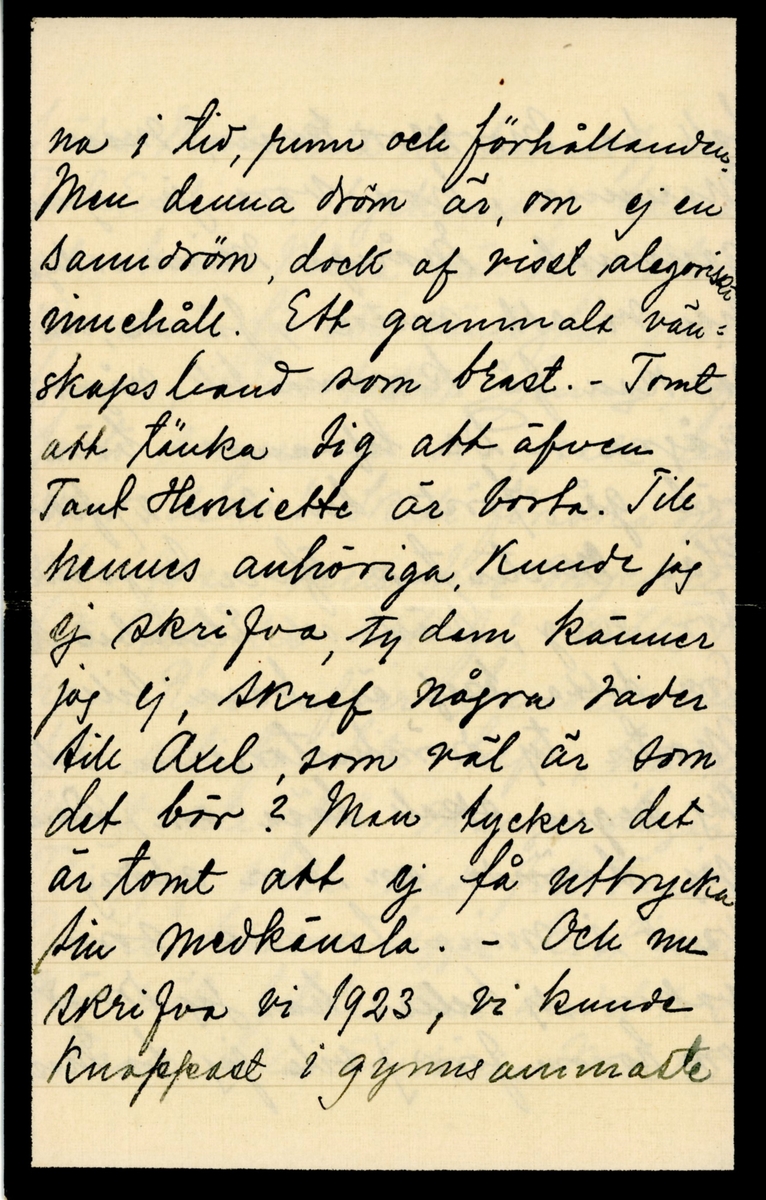 na i tid, rum och förhållanden.
Men denna dröm är, om ej en
sanndröm, dock af visst alegoriskt
innehåll. Ett gammalt vän=
skapsband som brast. - Tomt
att tänka sig att äfven
Tant Henriette är borta. Till
hennes anhöriga, kunde jag
ej skrifva, ty dem känner
jag ej, skref några rader
till Axel, som väl är som
det bör? Man tycker det
är tomt att ej få uttrycka
sin medkänsla. - Och nu
skrifva vi 1923, vi kunde
knappast i gynnsammaste